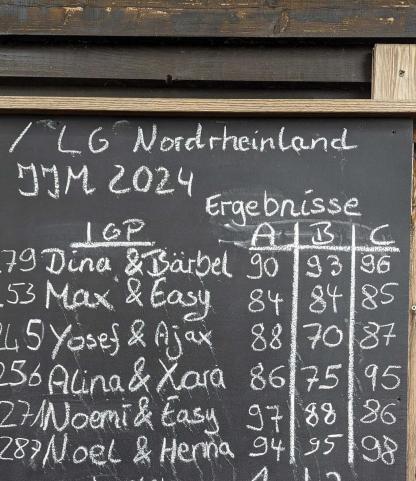 / LG Nordrheinland
JJM 2024
Ergebnisse
IGP A B C
279 Dina & Bärbel 90 93 96
253 Max & Easy 84 84 85
245 Yosef & Ajax 88 70 87
256 Alina & Xara 86 75 95
271 Noemi & Easy 97 88 86
287 Noel & Henna 94 95 98